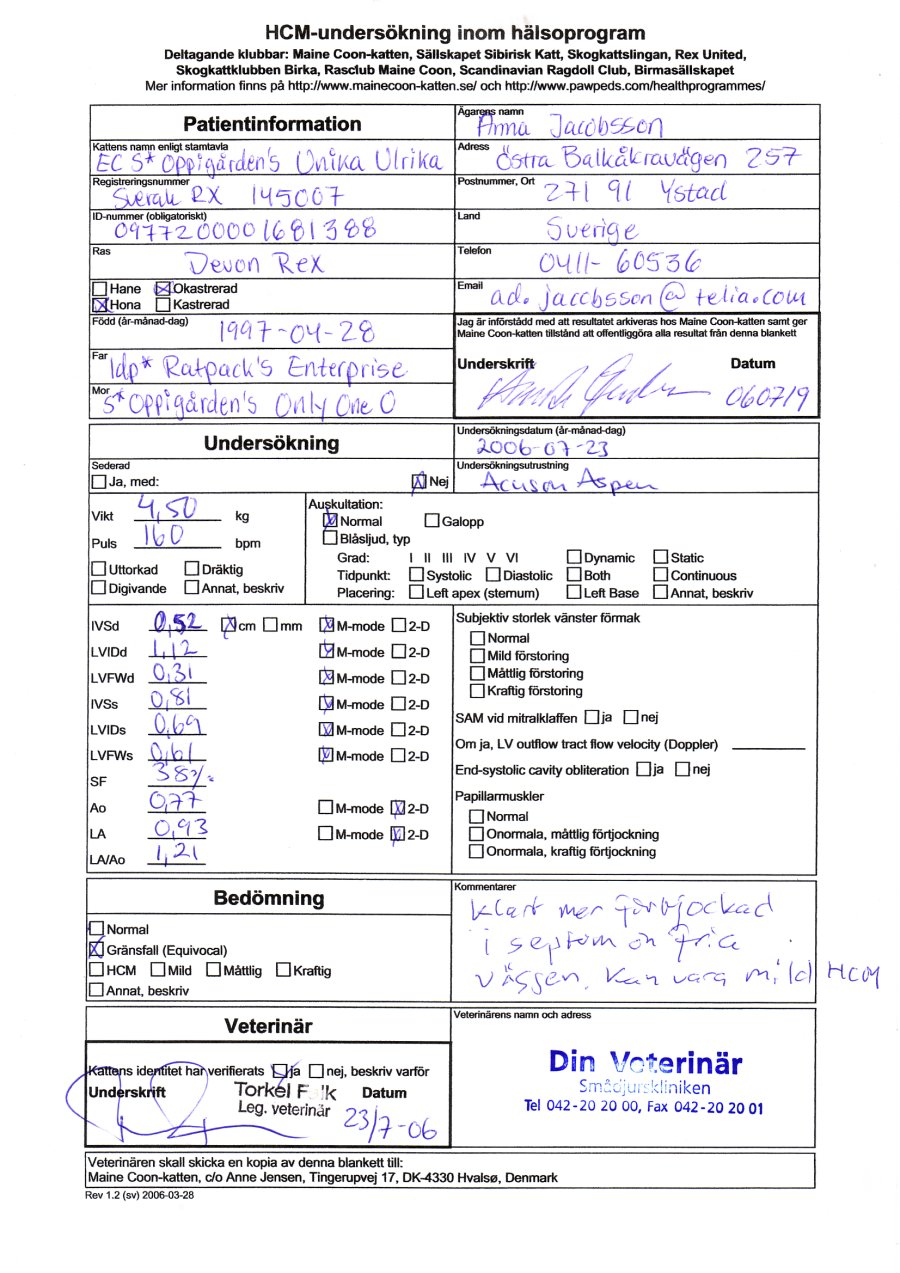 HCM-undersökning inom hälsoprogram
Deltagande klubbar: Maine Coon-katten, Sällskapet Sibirisk Katt, Skogkattslingan, Rex United,
Skogkattklubben Birka, Rasclub Maine Coon, Scandinavian Ragdoll Club, Birmasällskapet
Mer information finns på http://www.mainecoon-katten.se/ och http://www.pawpeds.com/healthprogrammes/
Patientinformation
Kattens namn enligt stamtavla
EC S* Oppigården's Unika Ulrika
Registreringsnummer
Sverak RX 145007
ID-nummer (obligatoriskt)
0977200001681388
Ras
Devon Rex
Hane Okastrerad
Hona Kastrerad
Född (år-månad-dag)
1997-04-28
Far
Idp* Ratpack's Enterprise
Mor
S* Oppigården's Only One O
Ägarens namn
Anna Jacobsson
Adress
Östra Balkåkravägen 257
Postnummer, Ort
271 91 Ystad
Land
Sverige
Telefon
0411-60536
Email
ad.jacobsson@telia.com
Jag är införstådd med att resultatet arkiveras hos Maine Coon-katten samt ger
Maine Coon-katten tillstånd att offentliggöra alla resultat från denna blankett
Underskrift Datum
060719
Undersökning
Sederad
Ja, med: Nej
Undersökningsdatum (år-månad-dag)
2006-07-23
Undersökningsutrustning
Acuson Aspen
Vikt 4,50 kg
Puls 160 bpm
Uttorkad Dräktig
Digivande Annat, beskriv
Auskultation:
Normal Galopp
Blåsljud, typ
Grad: I II III IV V VI Dynamic Static
Tidpunkt: Systolic Diastolic Both Continuous
Placering: Left apex (sternum) Left Base Annat, beskriv
IVSd 0,52 cm mm M-mode 2-D
LVIDd 1,12 M-mode 2-D
LVFWd 0,31 M-mode 2-D
IVSs 0,81 M-mode 2-D
LVIDs 0,69 M-mode 2-D
LVFWs 0,61 M-mode 2-D
SF 38%
Ao 0,77 M-mode 2-D
LA 0,93 M-mode 2-D
LA/Ao 1,21
Subjektiv storlek vänster förmak
Normal
Mild förstoring
Måttlig förstoring
Kraftig förstoring
SAM vid mitralklaffen ja nej
Om ja, LV outflow tract flow velocity (Doppler)
End-systolic cavity obliteration ja nej
Papillarmuskler
Normal
Onormala, måttlig förtjockning
Onormala, kraftig förtjockning
Bedömning
Normal
Gränsfall (Equivocal)
HCM Mild Måttlig Kraftig
Annat, beskriv
Kommentarer
Klart mer förtjockad
i septum än fria
väggen. Kan vara mild HCM
Veterinär
Kattens identitet har verifierats ja nej, beskriv varför
Underskrift Torkel Falk Datum
Leg. veterinär 23/7-06
Veterinärens namn och adress
Din Veterinär
Smådjurskliniken
Tel 042-20 20 00, Fax 042-20 20 01
Veterinären skall skicka en kopia av denna blankett till:
Maine Coon-katten, c/o Anne Jensen, Tingerupvej 17, DK-4330 Hvalsø, Denmark
Rev 1.2 (sv) 2006-03-28